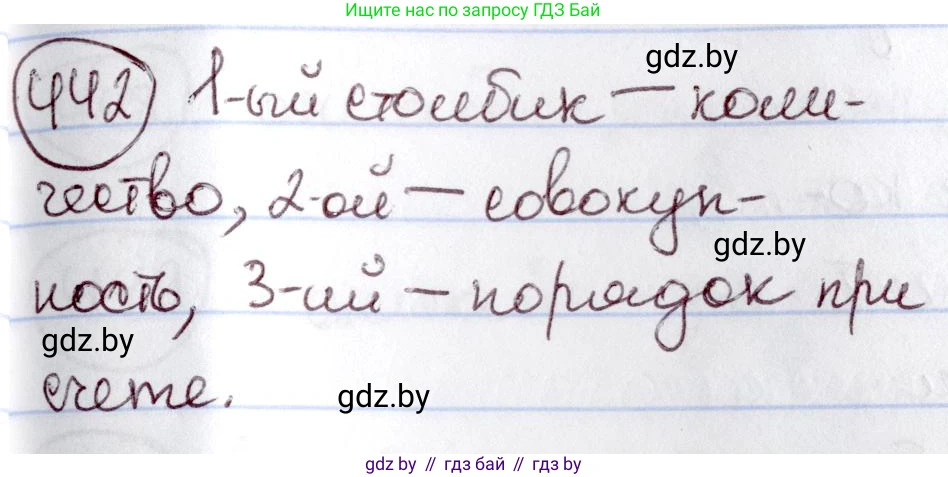 Ищите нас по запросу ГДЗ Бай
gdz.by
442 1-ый столбик — коли-
чество, 2-ой — совокуп-
gdz.by
ность, 3-ий — порядок при
gdz.by
счете.
gdz.by
gdz by // гдз бай // гдз by